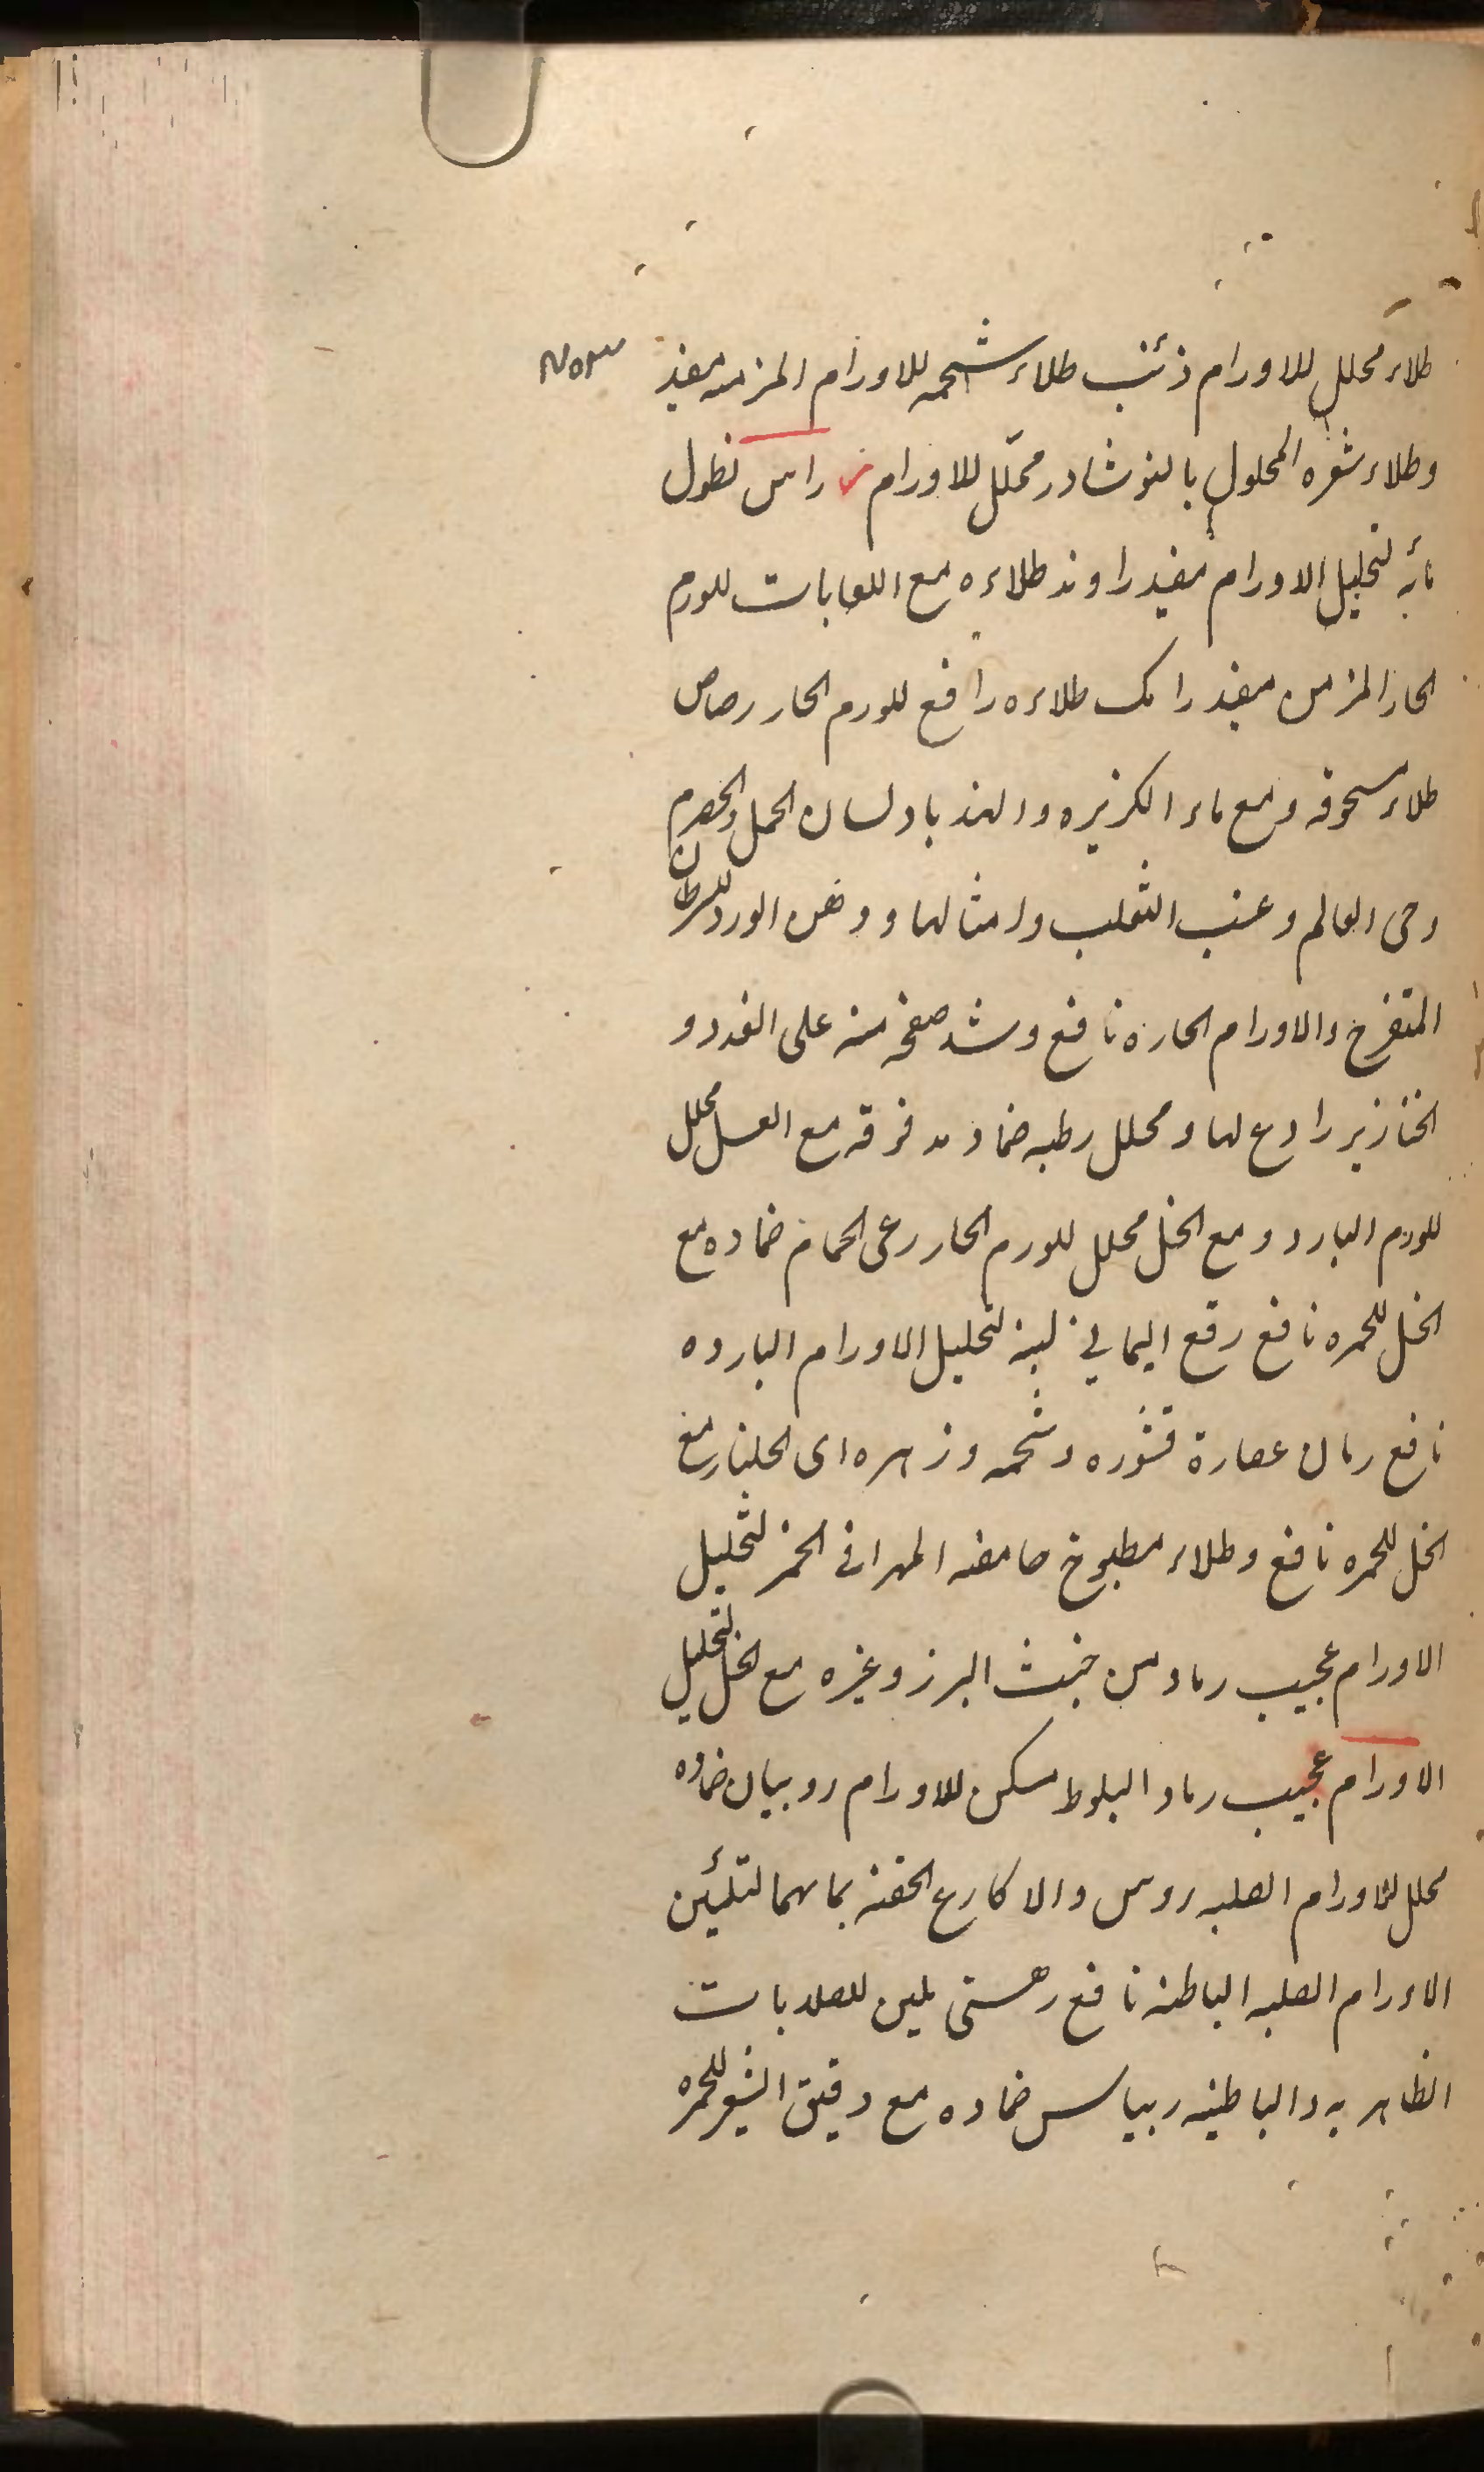 طلاء محلل للاورام ذئب طلاء شحمه للاورام المزمنه مفيد
وطلاء شعره المحلول بالنوشادر محلّل للاورام راس نطول
مائه لتحليل الاورام مفيد راوند طلاءه مع اللعابات للورم
الحار المزمن مفيد رامك طلاءه رافع للورم الحار رصاص
طلاء سحوقه ومع ماء الكزبره والهندبا ولسان الحمل والحصرم
وحى العالم وعنب الثعلب وامثالها ودهن الورد للسرطان
المتقرح والاورام الحاره نافع وشد صفحه منه على الغدد و
الخنازير رادع لها ومحلل رطبه ضماد مع العسل محلل
للورم البارد ومع الخل محلل للورم الحار رعى الحمام ضماده مع
الخل للحمره نافع رقع اليماني لبنه لتحليل الاورام البارده
نافع رمان عصارة قشوره وشحمه وزهره اى الجلنار مع
الخل للحمره نافع وطلاء مطبوخ حامضه المهرا فى الخمر لتحليل
الاورام عجيب رماد من خبث البرز وغيره مع الخل لتحليل
الاورام عجيب رماد البلوط مسكن للاورام روبيان ضماده
محلل للاورام الصلبه روس والاكارع الحقنه بمائهما لتلئين
الاورام الصلبه الباطنه نافع رهشى يلين للصلابات
الظاهريه والباطنيه ريباس ضماده مع دقيق الشعير للحمره